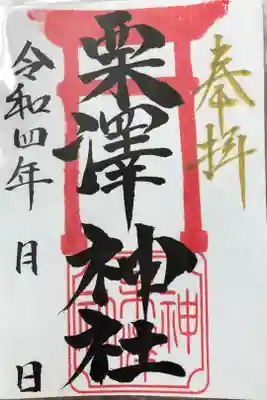 奉拝
栗澤神社
令和四年 月 日